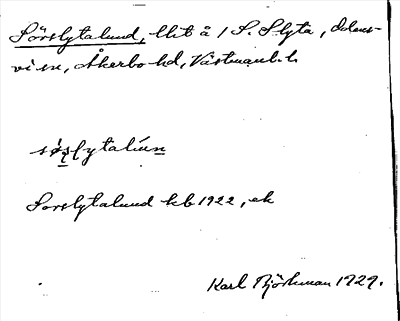 Sörslytalund, lht å 1 S. Slyta, Odens-
vi sn, Åkerbo hd, Västmanl. l.
Sorslytalund kb 1922, ek
Karl Björkman 1929.